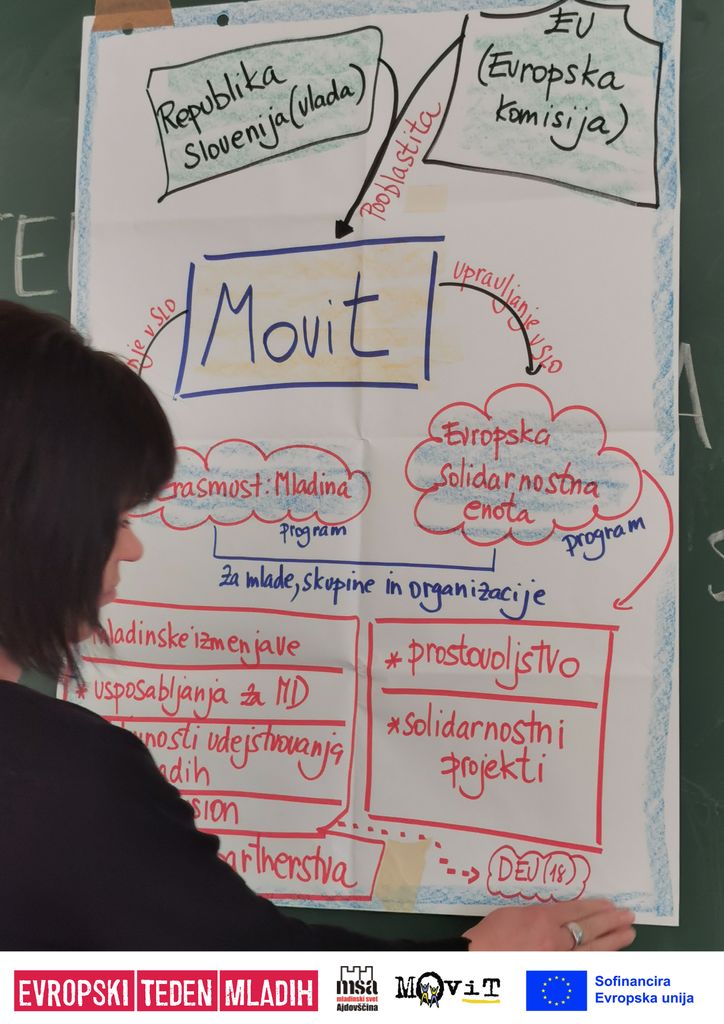 Republika
Slovenija (vlada)
EU
(Evropska
komisija)
Pooblastita
Movit
upravljanje v SLO
nje v SLO
Erasmus+: Mladina
program
Evropska
solidarnostna
enota
program
za mlade, skupine in organizacije
mladinske izmenjave
* usposabljanja za MD
nosti udejstvovanja
adih
sion
artnerstva
* prostovoljstvo
* solidarnostni
projekti
DEU (18)
EVROPSKI TEDEN MLADIH
msa
mladinski svet
Ajdovščina
MOViT
Sofinancira
Evropska unija